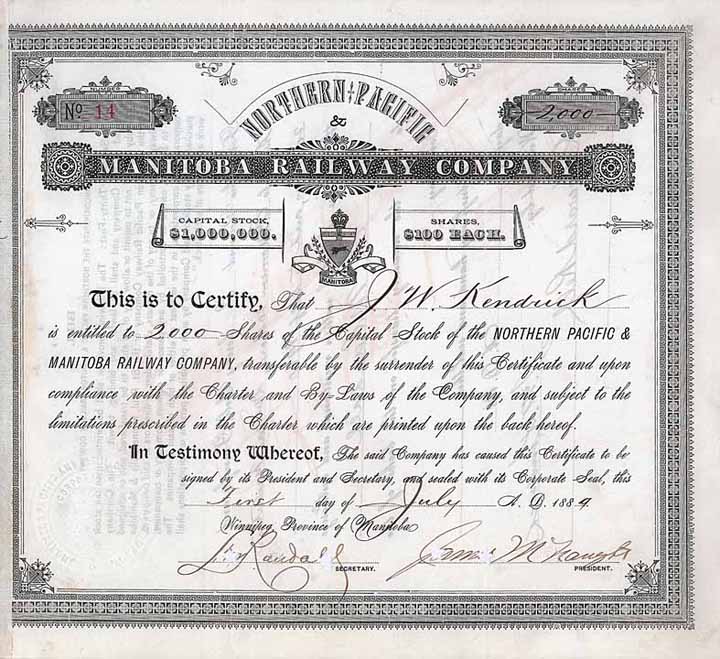 NUMBER
No 14
SHARES
2,000
NORTHERN PACIFIC
&
MANITOBA RAILWAY COMPANY
CAPITAL STOCK,
$1,000,000.
SHARES,
$100 EACH.
MANITOBA
This is to Certify, That J W. Kendrick
is entitled to 2,000 Shares of the Capital Stock of the NORTHERN PACIFIC &
MANITOBA RAILWAY COMPANY, transferable by the surrender of this Certificate and upon
compliance with the Charter and By-Laws of the Company, and subject to the
limitations prescribed in the Charter which are printed upon the back hereof.
In Testimony Whereof, The said Company has caused this Certificate to be
signed by its President and Secretary, and sealed with its Corporate Seal, this
First day of July A. D. 1889
Winnipeg, Province of Manitoba
Randall
SECRETARY.
James McNaught
PRESIDENT.